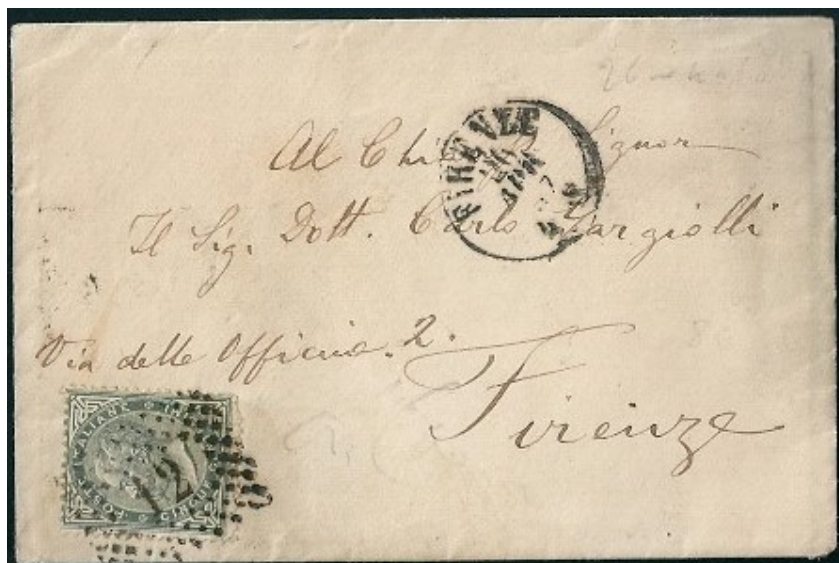 FIRENZE
Al Signor
Il Sig. Dott. Carlo Gargiolli
Via delle Officine. 2.
Firenze
POSTE ITALIANE
12